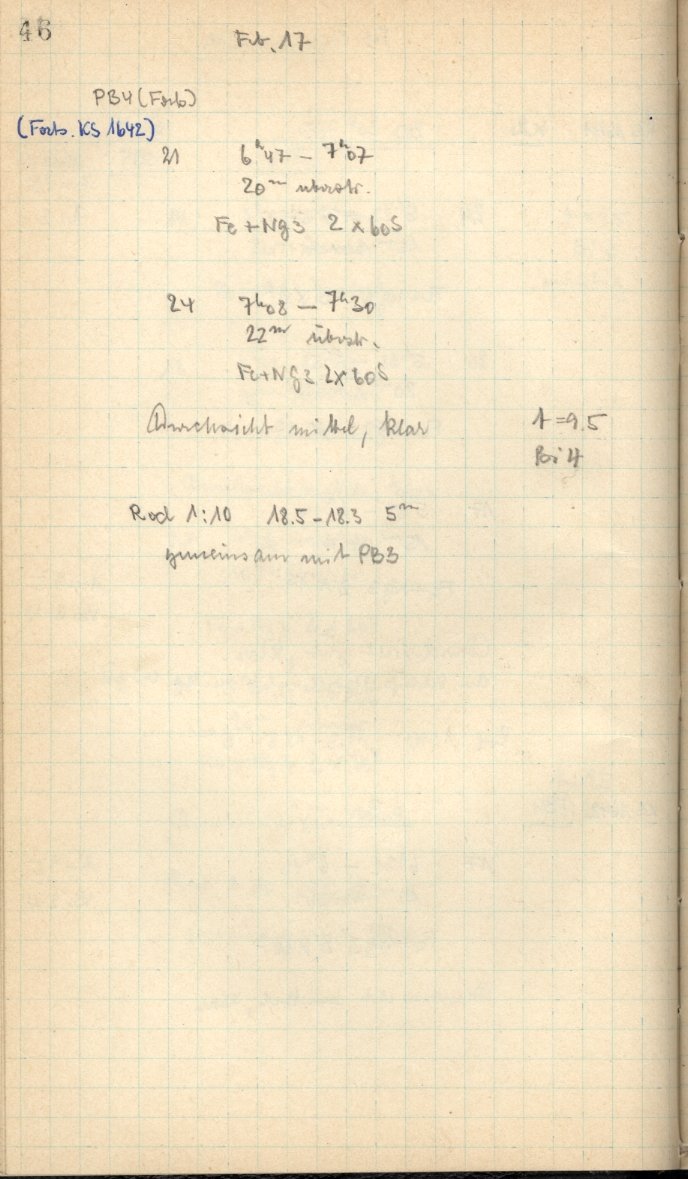 46
Feb. 17
PB4 (Forts)
(Forts. KS 1642)
21 6ʰ47 – 7ʰ07
20ᵐ überstr.
Fe + Ng3 2 x 60S
24 7ʰ08 – 7ʰ30
22ᵐ überstr.
Fe+Ng3 2x60S
Durchsicht mittel, klar t=9.5
Bi 4
Rod 1:10 18.5–18.3 5ᵐ
gemeinsam mit PB3